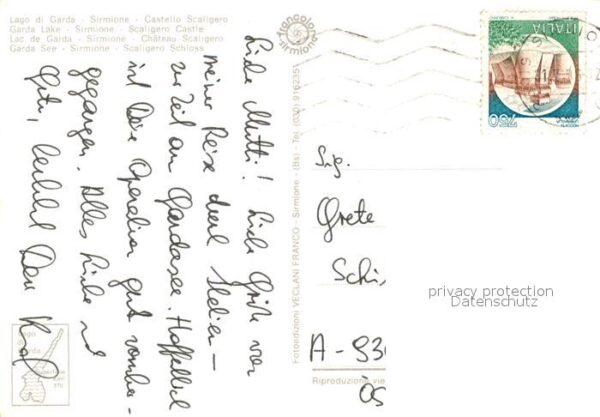 Lago di Garda - Sirmione - Castello Scaligero
Garda Lake - Sirmione - Scaligero Castle
Lac de Garda - Sirmione - Château Scaligero
Garda See - Sirmione - Scaligero Schloss
Liebe Mutti! Liebe Grüße von
meiner Reise durch Italien -
zur Zeit am Gardasee. Hoffentlich
ist Deine Operation gut vorüber-
gegangen. Alles Liebe und
Gute, herzlichst Dein
Fotoedizioni VECLANI FRANCO - Sirmione - (Bs) - Tel. (030) 916235
sirmione
ITALIA
750
Sig.
Grete
Schi
privacy protection
Datenschutz
A-93
ÖS
Riproduzione vie
Lago
di
Garda